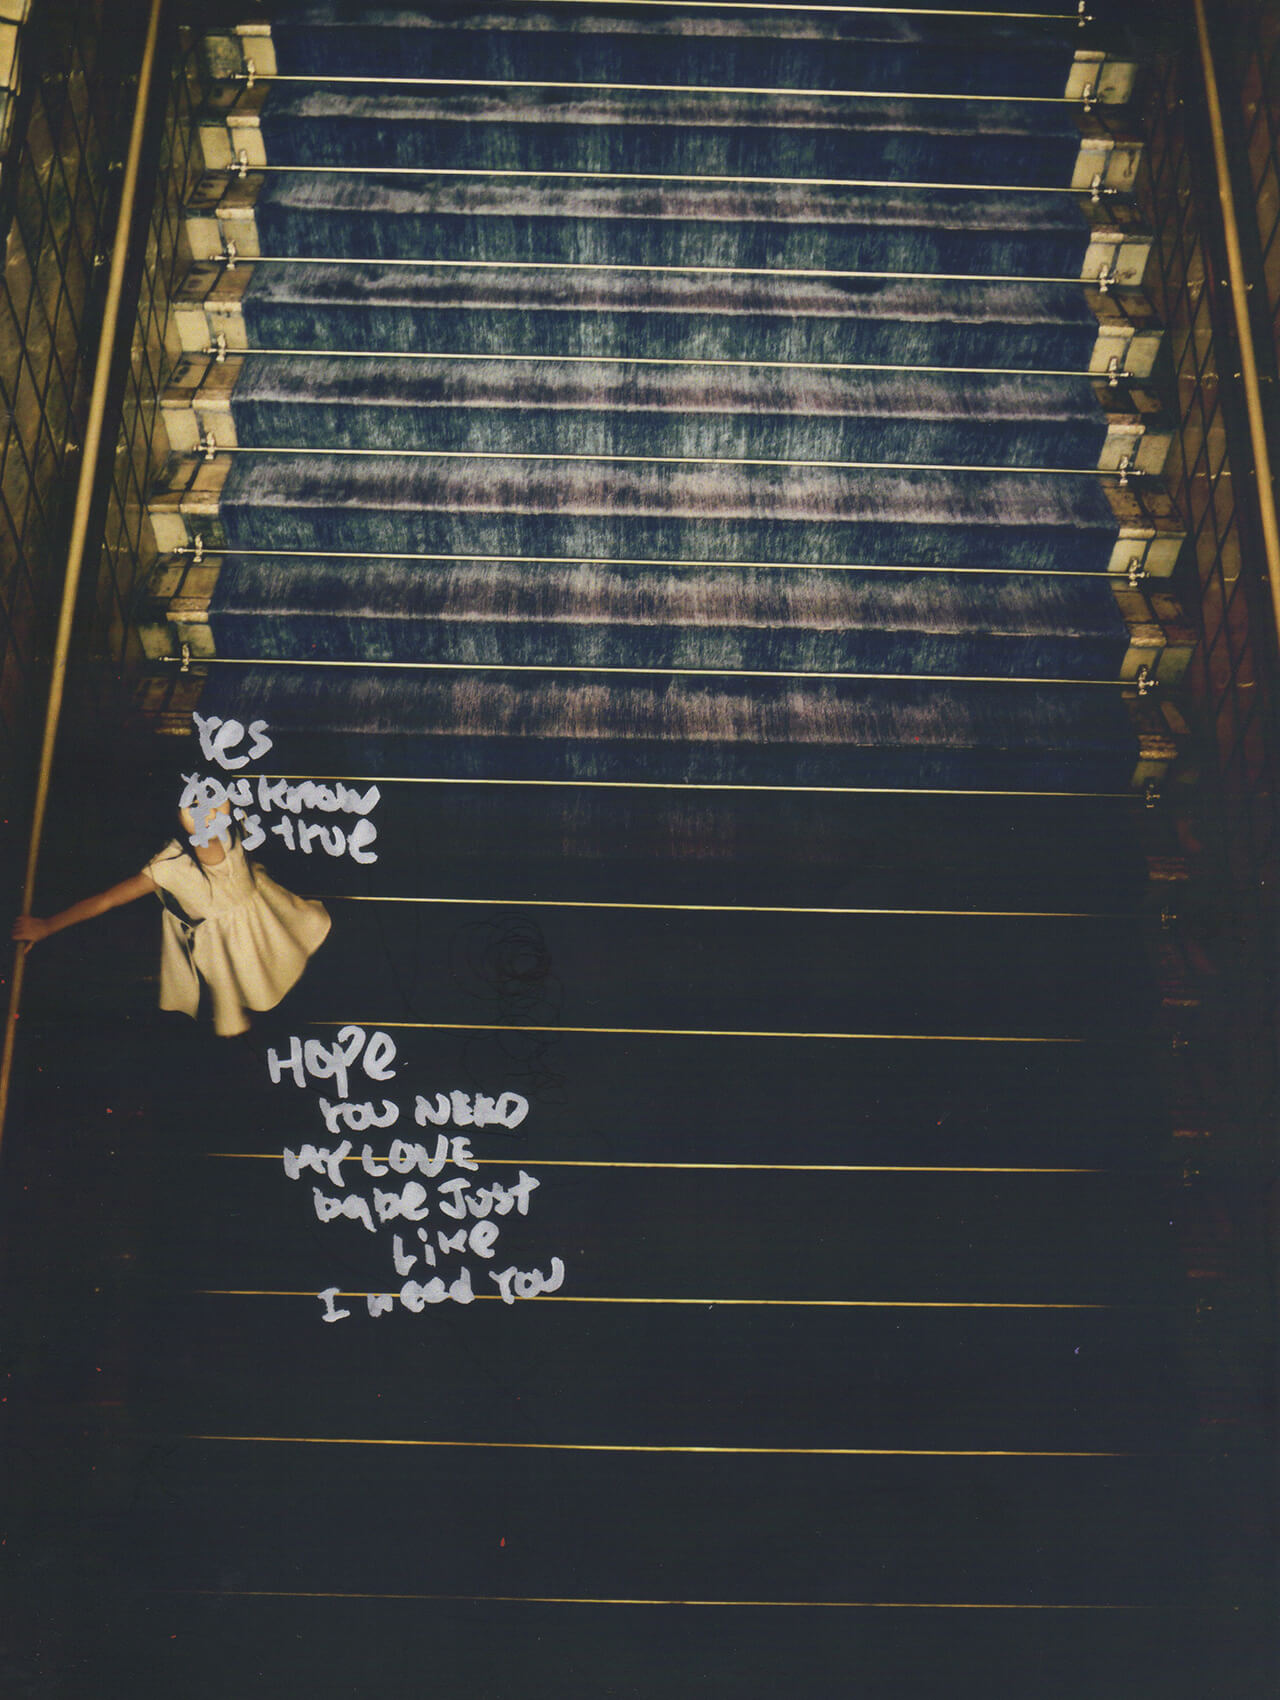 Yes
You know
it's true
Hope
YOU NEED
MY LOVE
babe Just
Like
I need YOU